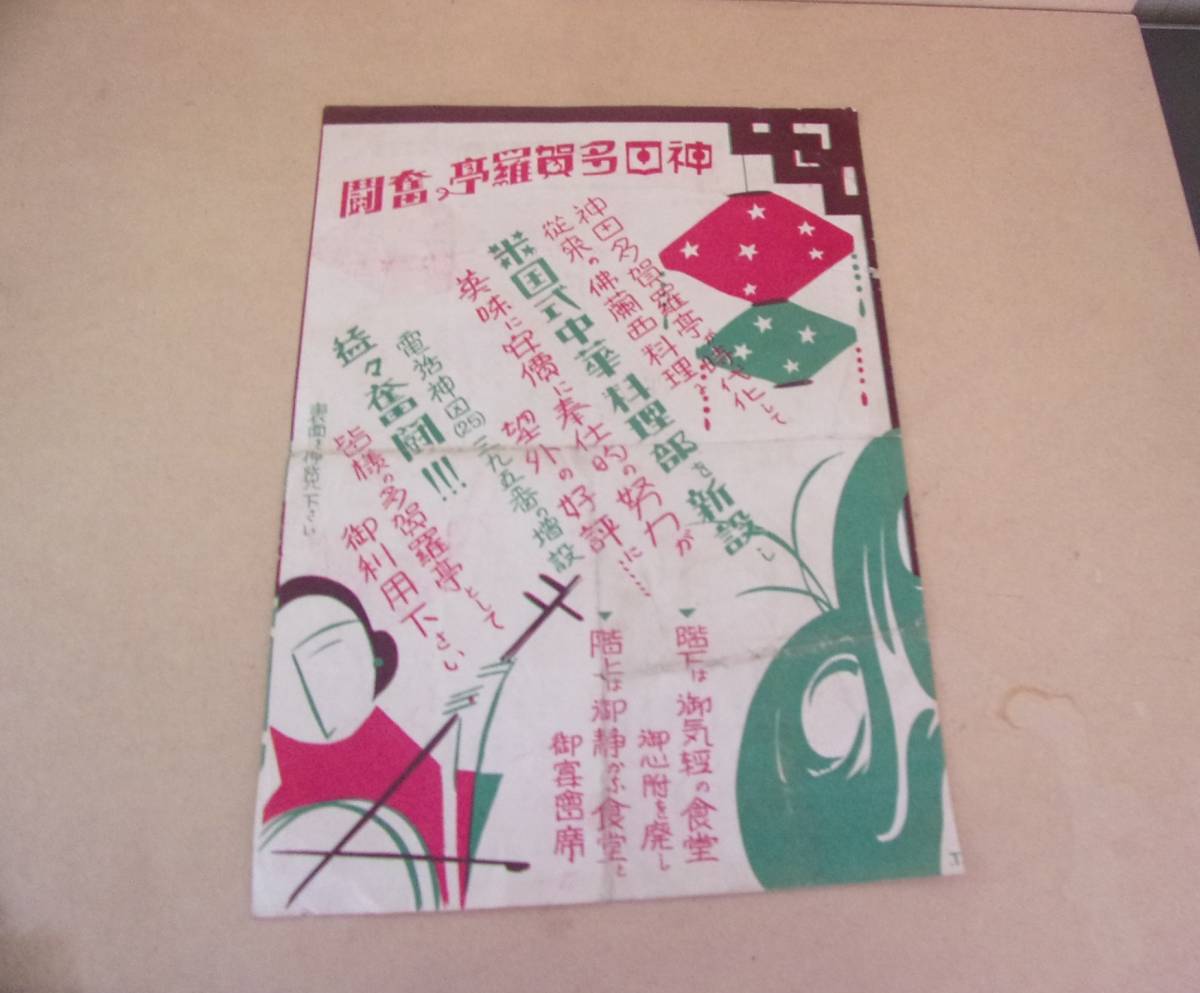 神田多賀羅亭の奮闘
神田多賀羅亭が時代化して
従来の佛蘭西料理より
米国式中華料理部を新設し
美味に安價に奉仕的の努力が
望外の好評に……
電話神田(25)二九五番の増設
益々奮闘!!!
皆様の多賀羅亭として
御利用下さい
裏面を御覧下さい
階下は御気軽の食堂
御心附を廃し
階上は御静かな食堂と
御宴會席